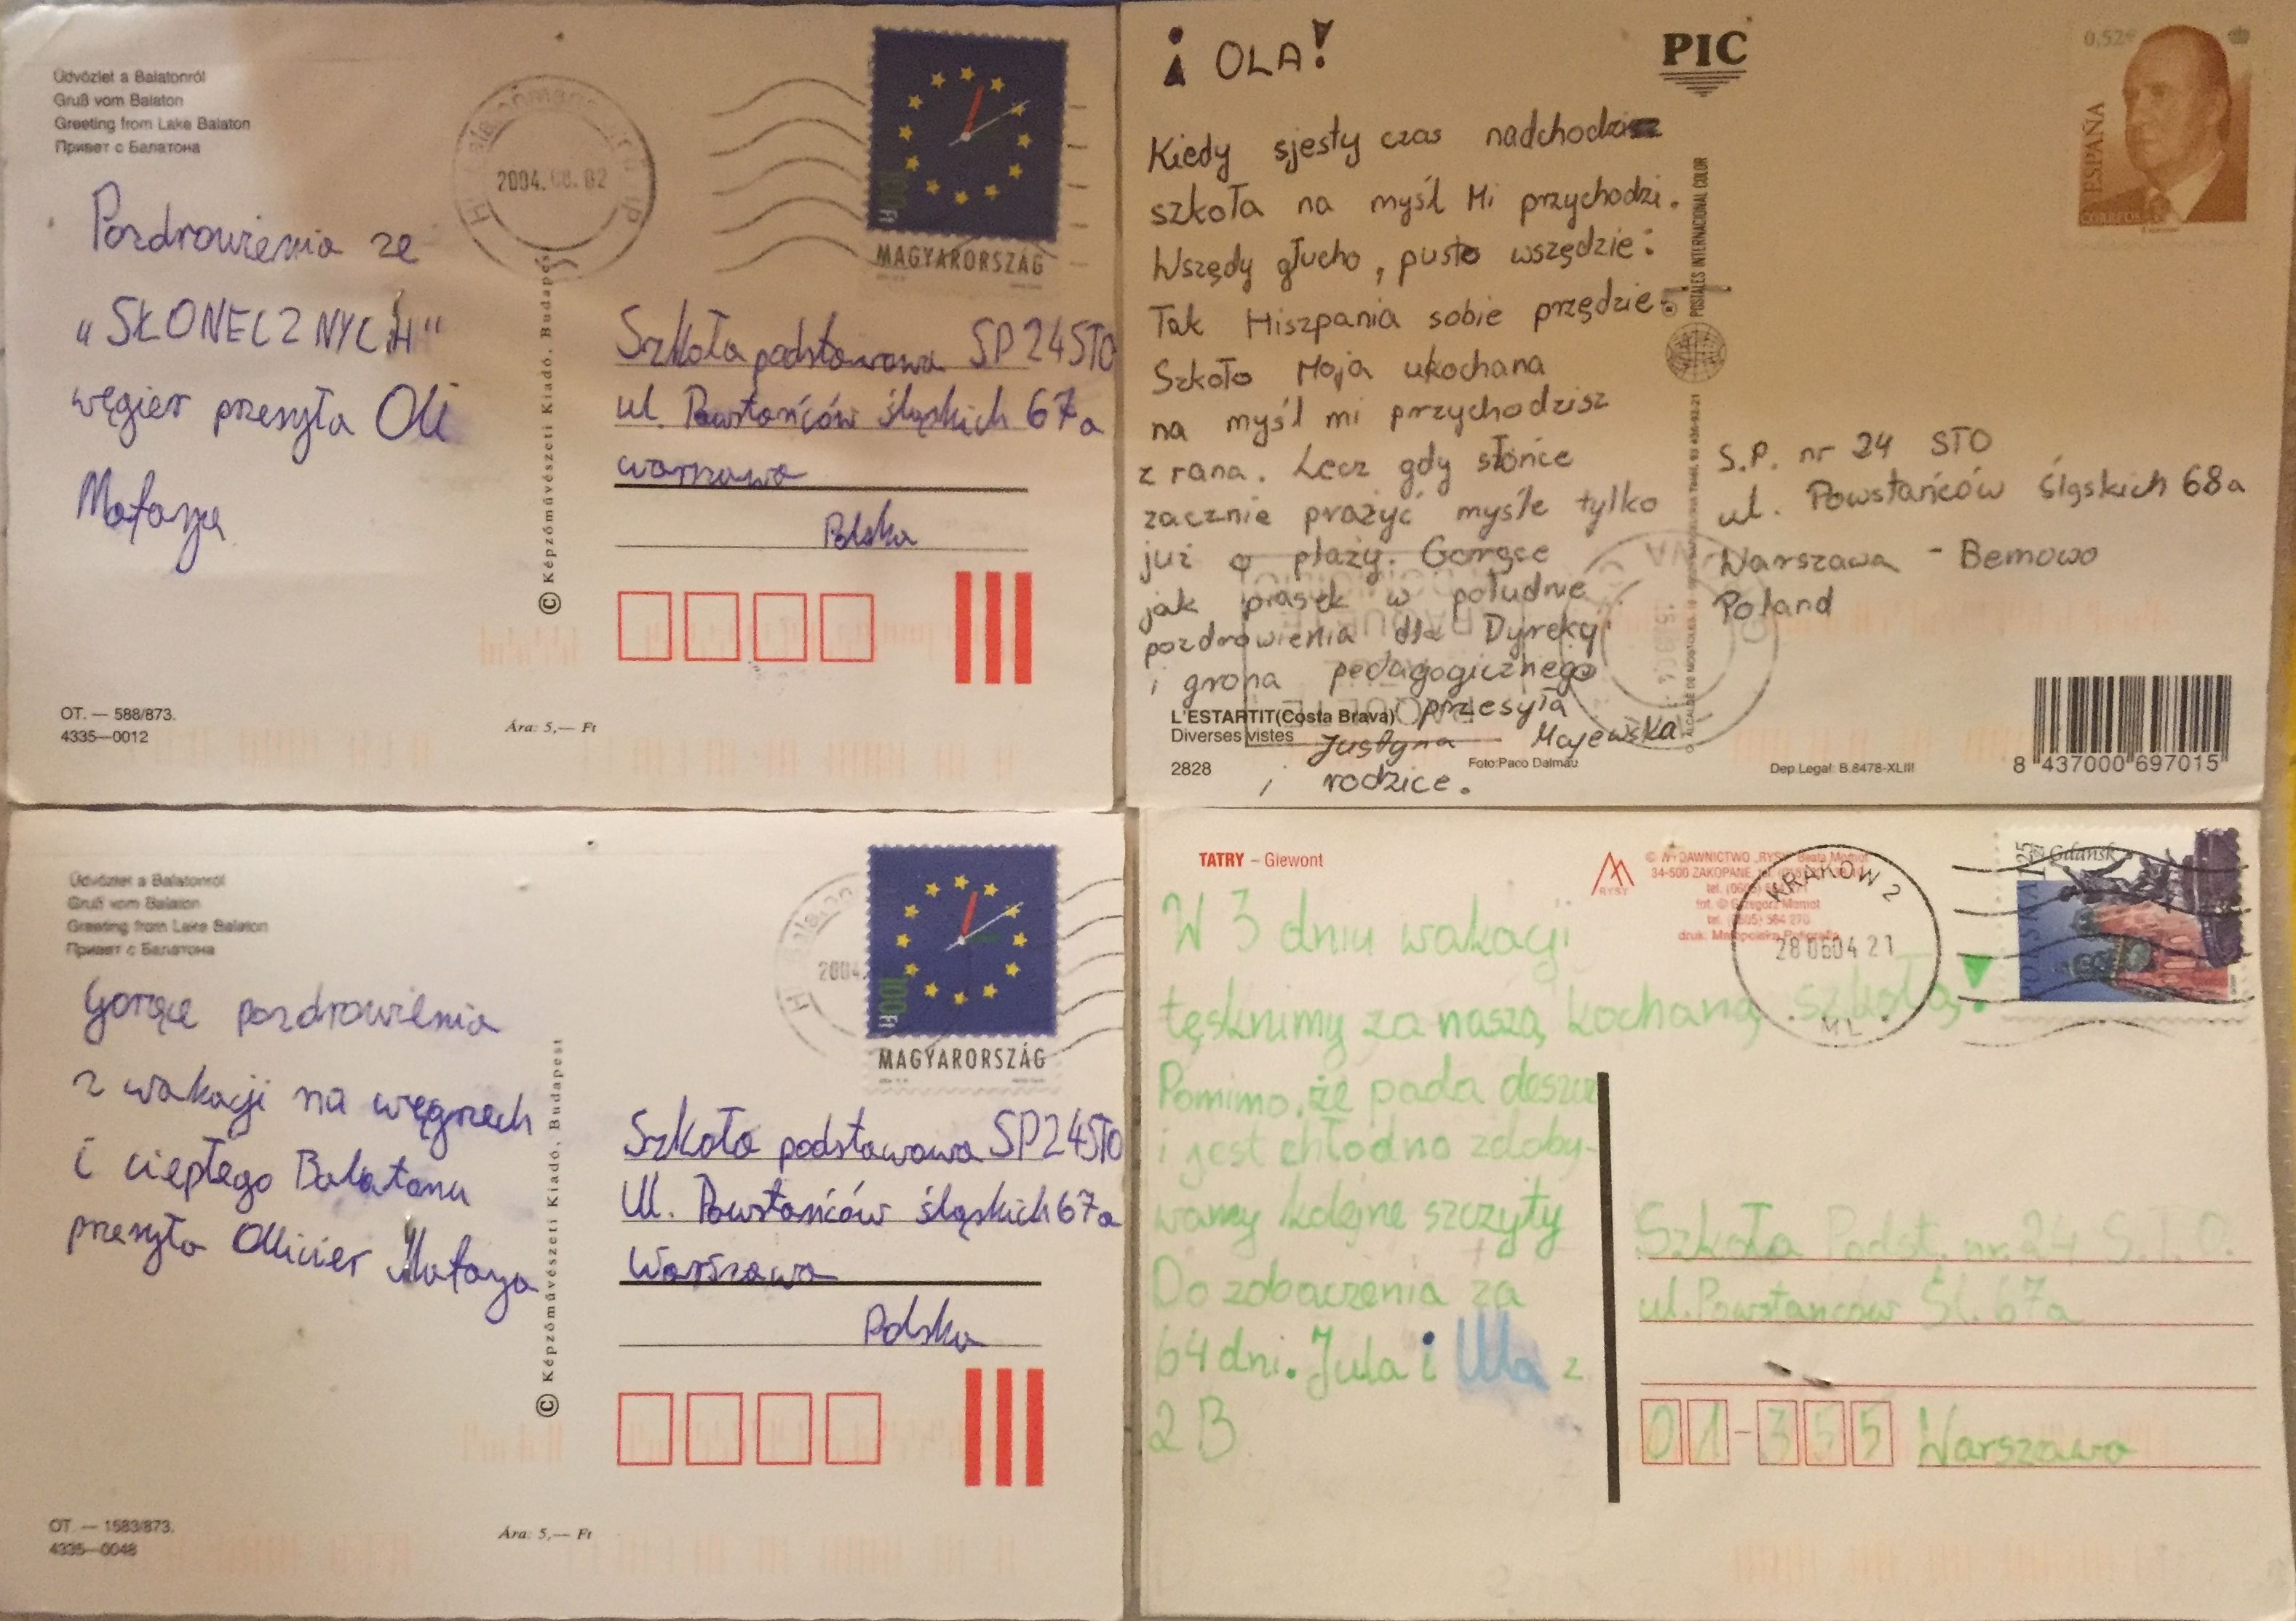 Üdvözlet a Balatonról
Gruß vom Balaton
Greeting from Lake Balaton
Привет с Балатона
2004. 02
100 Ft
MAGYARORSZÁG
Pozdrowienia ze
„SŁONECZNYCH“
węgier przesyła Oli
Mataya
© Képzőművészeti Kiadó, Budapest
Szkoła podstawowa SP24STO
ul. Powstańców śląskich 67a
warszawa
Polska
OT. — 588/873.
4335—0012
Ára: 5,— Ft
¡ OLA!
PIC
0,52€
ESPAÑA
CORREOS
Kiedy sjesty czas nadchodzi
szkoła na myśl Mi przychodzi.
Wszędy głucho, pusto wszędzie:
Tak Hiszpania sobie przędzie
Szkoło Moja ukochana
na myśl mi przychodzisz
z rana. Lecz gdy słońce
zacznie prażyć myśle tylko
już o plaży. Gorące
jak piasek w południe
pozdrowienia dla Dyrekcji
i grona pedagogicznego
przesyła
Justyna Majewska
i rodzice.
POSTALES INTERNACIONAL COLOR
S.P. nr 24 STO
ul. Powstańców śląskich 68a
Warszawa - Bemowo
Poland
L'ESTARTIT(Costa Brava)
Diverses vistes
2828
Foto:Paco Dalmau
Dep.Legal: B.8478-XLIII
8 437000 697015
Üdvözlet a Balatonról
Gruß vom Balaton
Greeting from Lake Balaton
Привет с Балатона
2004.
100 Ft
MAGYARORSZÁG
Gorące pozdrowienia
z wakacji na węgrzech
i ciepłego Balatonu
przesyła Olivier Mataya
© Képzőművészeti Kiadó, Budapest
Szkoła podstawowa SP24STO
Ul. Powstańców śląskich 67a
Warszawa
Polska
OT. — 1583/873.
4335—0048
Ára: 5,— Ft
TATRY – Giewont
RYSY
© WYDAWNICTWO „RYSY” Beata Momot
34-500 ZAKOPANE,
fot. © Grzegorz Momot
KRAKÓW 2
280604 21
ML
Gdańsk
POLSKA
W 3 dniu wakacji
tęsknimy za naszą kochaną szkołą!
Pomimo, że pada deszcz
i jest chłodno zdoby-
wamy kolejne szczyty
Do zobaczenia za
64 dni. Jula i Ula z
2 B
Szkoła Podst. nr. 24 S.T.O.
ul. Powstańców Śl. 67a
01-355 Warszawa